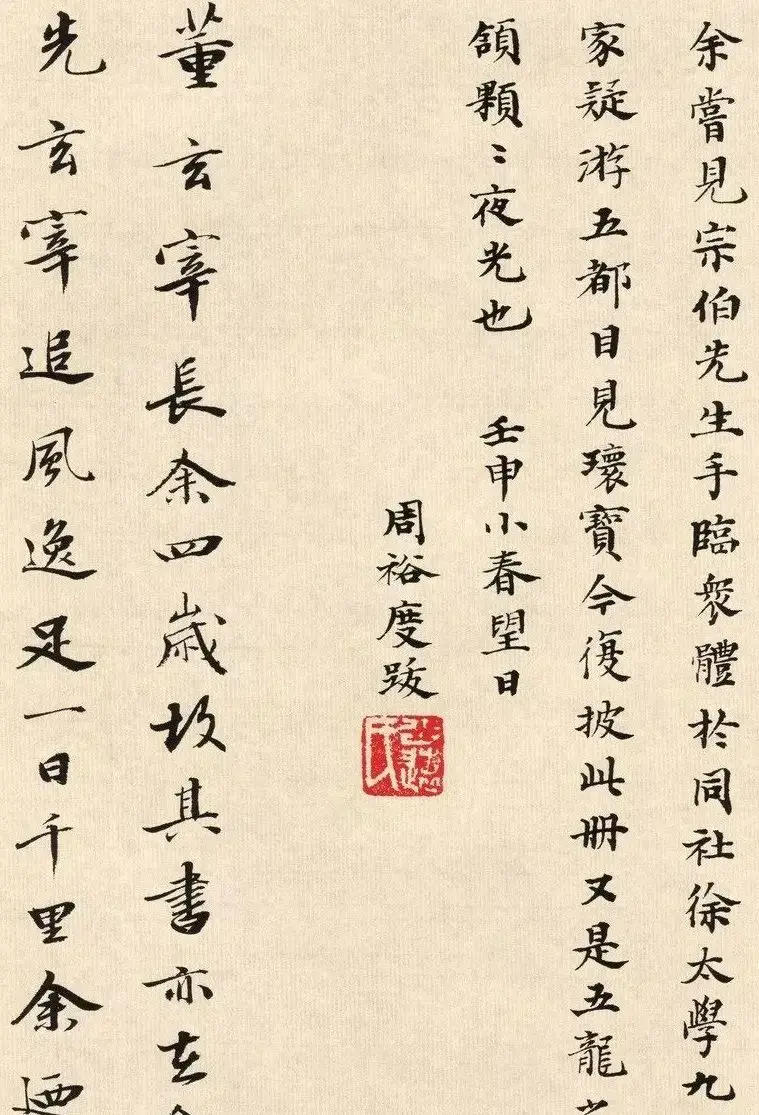 余嘗見宗伯先生手臨衆體於同社徐太學九
家疑游五都目見瓌寶今復披此冊又是五龍
頷顆〻夜光也 壬申小春望日
周裕度跋
董玄宰長余四歲故其書亦在
先玄宰追風逸足一日千里余迺